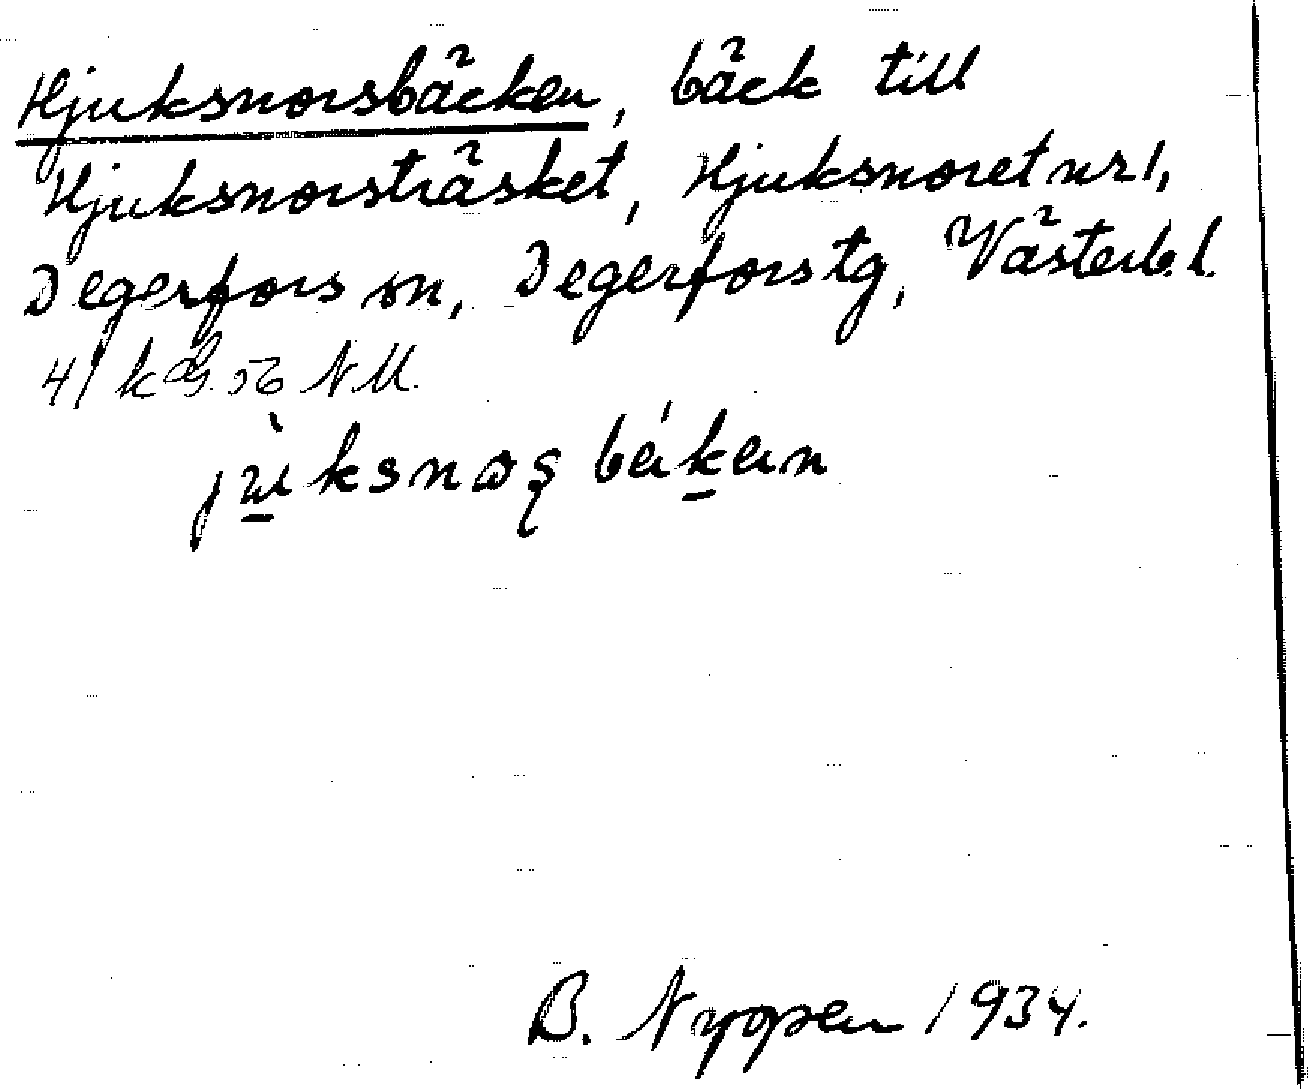 Hjuksnorsbäcken, bäck till
Hjuksnorsträsket, Hjuksnoret nr 1,
Degerfors sn, Degerfors tg, Västerb. l.
41 56 NU.
B. Nyopen 1934.